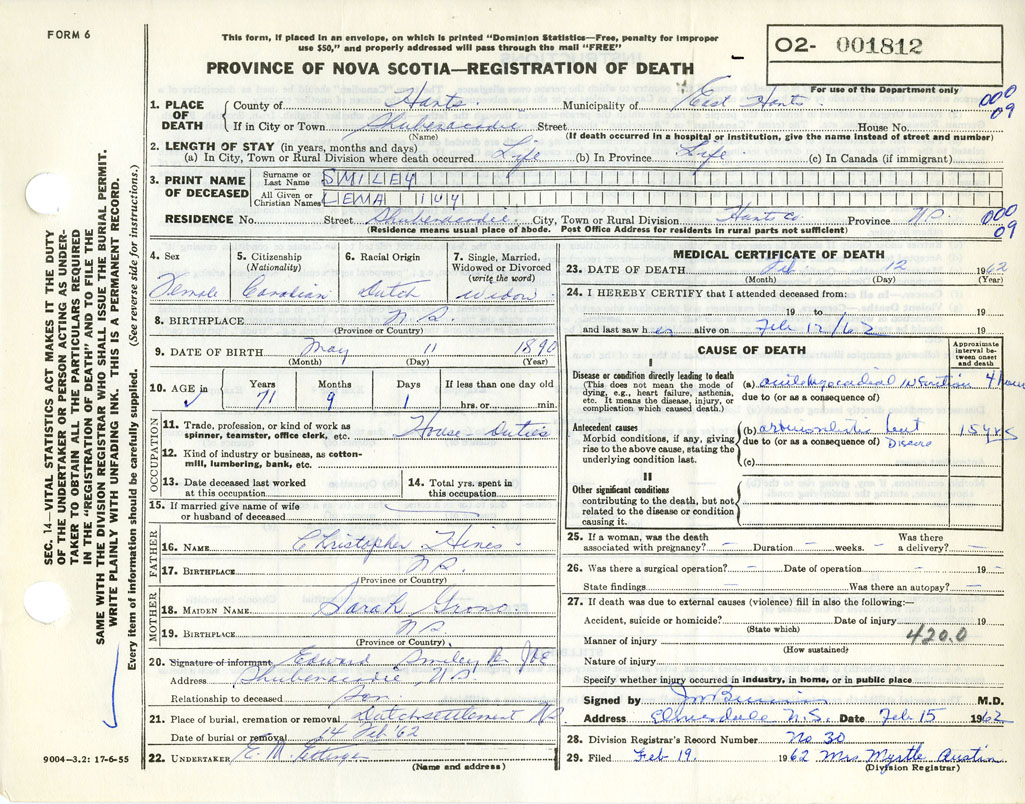 FORM 6
This form, if placed in an envelope, on which is printed "Dominion Statistics—Free, penalty for improper
use $50," and properly addressed will pass through the mail "FREE"
O2- 001812
PROVINCE OF NOVA SCOTIA—REGISTRATION OF DEATH
For use of the Department only
1. PLACE OF DEATH
County of Hants. Municipality of East Hants 000
09
If in City or Town Shubenacadie Street House No.
(Name) (If death occurred in a hospital or institution, give the name instead of street and number)
2. LENGTH OF STAY (in years, months and days)
(a) In City, Town or Rural Division where death occurred Life (b) In Province Life (c) In Canada (if immigrant)
3. PRINT NAME OF DECEASED
Surname or Last Name SMILEY
All Given or Christian Names LEMA IVY
RESIDENCE No. Street Shubenacadie. City, Town or Rural Division Hants Co Province N.S. 000
(Residence means usual place of abode. Post Office Address for residents in rural parts not sufficient) 09
4. Sex Female
5. Citizenship (Nationality) Canadian
6. Racial Origin Dutch
7. Single, Married, Widowed or Divorced (write the word) Widow.
8. BIRTHPLACE N.S.
(Province or Country)
9. DATE OF BIRTH May 11 1890
(Month) (Day) (Year)
10. AGE in Years Months Days If less than one day old
71 9 1 hrs. or min.
OCCUPATION
11. Trade, profession, or kind of work as spinner, teamster, office clerk, etc. House-Duties
12. Kind of industry or business, as cotton-mill, lumbering, bank, etc.
13. Date deceased last worked at this occupation
14. Total yrs. spent in this occupation
15. If married give name of wife or husband of deceased
FATHER
16. NAME Christopher Hines
17. BIRTHPLACE N.S.
(Province or Country)
MOTHER
18. MAIDEN NAME Sarah Grono.
19. BIRTHPLACE N.S.
(Province or Country)
20. Signature of informant Edward Smiley
Address Shubenacadie, N.S.
Relationship to deceased Son
21. Place of burial, cremation or removal Dutch settlement NS
Date of burial or removal 14 Feb '62
22. UNDERTAKER E. M. Ettinger
(Name and address)
MEDICAL CERTIFICATE OF DEATH
23. DATE OF DEATH Feb 12 1962
(Month) (Day) (Year)
24. I HEREBY CERTIFY that I attended deceased from:
19 to 19
and last saw h er alive on Feb 12/62 19
CAUSE OF DEATH
Approximate interval between onset and death
I
Disease or condition directly leading to death
(This does not mean the mode of dying, e.g., heart failure, asthenia, etc. It means the disease, injury, or complication which caused death.)
(a) Myocardial infarction 4 hours
due to (or as a consequence of)
Antecedent causes
Morbid conditions, if any, giving rise to the above cause, stating the underlying condition last.
(b) Heart 15 yrs
due to (or as a consequence of) Disease
(c)
II
Other significant conditions
contributing to the death, but not related to the disease or condition causing it.
25. If a woman, was the death associated with pregnancy? — Duration — weeks. — Was there a delivery? —
26. Was there a surgical operation? — Date of operation — 19 —
State findings — Was there an autopsy? —
27. If death was due to external causes (violence) fill in also the following:—
Accident, suicide or homicide? Date of injury 19
(State which)
Manner of injury 420.0
(How sustained)
Nature of injury
Specify whether injury occurred in industry, in home, or in public place
Signed by M.D.
Address Elmsdale N.S. Date Feb 15 1962
28. Division Registrar's Record Number No 30
29. Filed Feb 19. 1962 Mrs Myrtle Austin
(Division Registrar)
9004—3.2: 17-6-55
SEC. 14—VITAL STATISTICS ACT MAKES IT THE DUTY
OF THE UNDERTAKER OR PERSON ACTING AS UNDER-
TAKER TO OBTAIN ALL THE PARTICULARS REQUIRED
IN THE "REGISTRATION OF DEATH" AND TO FILE THE
SAME WITH THE DIVISION REGISTRAR WHO SHALL ISSUE THE BURIAL PERMIT.
WRITE PLAINLY WITH UNFADING INK. THIS IS A PERMANENT RECORD.
Every item of information should be carefully supplied. (See reverse side for instructions.)